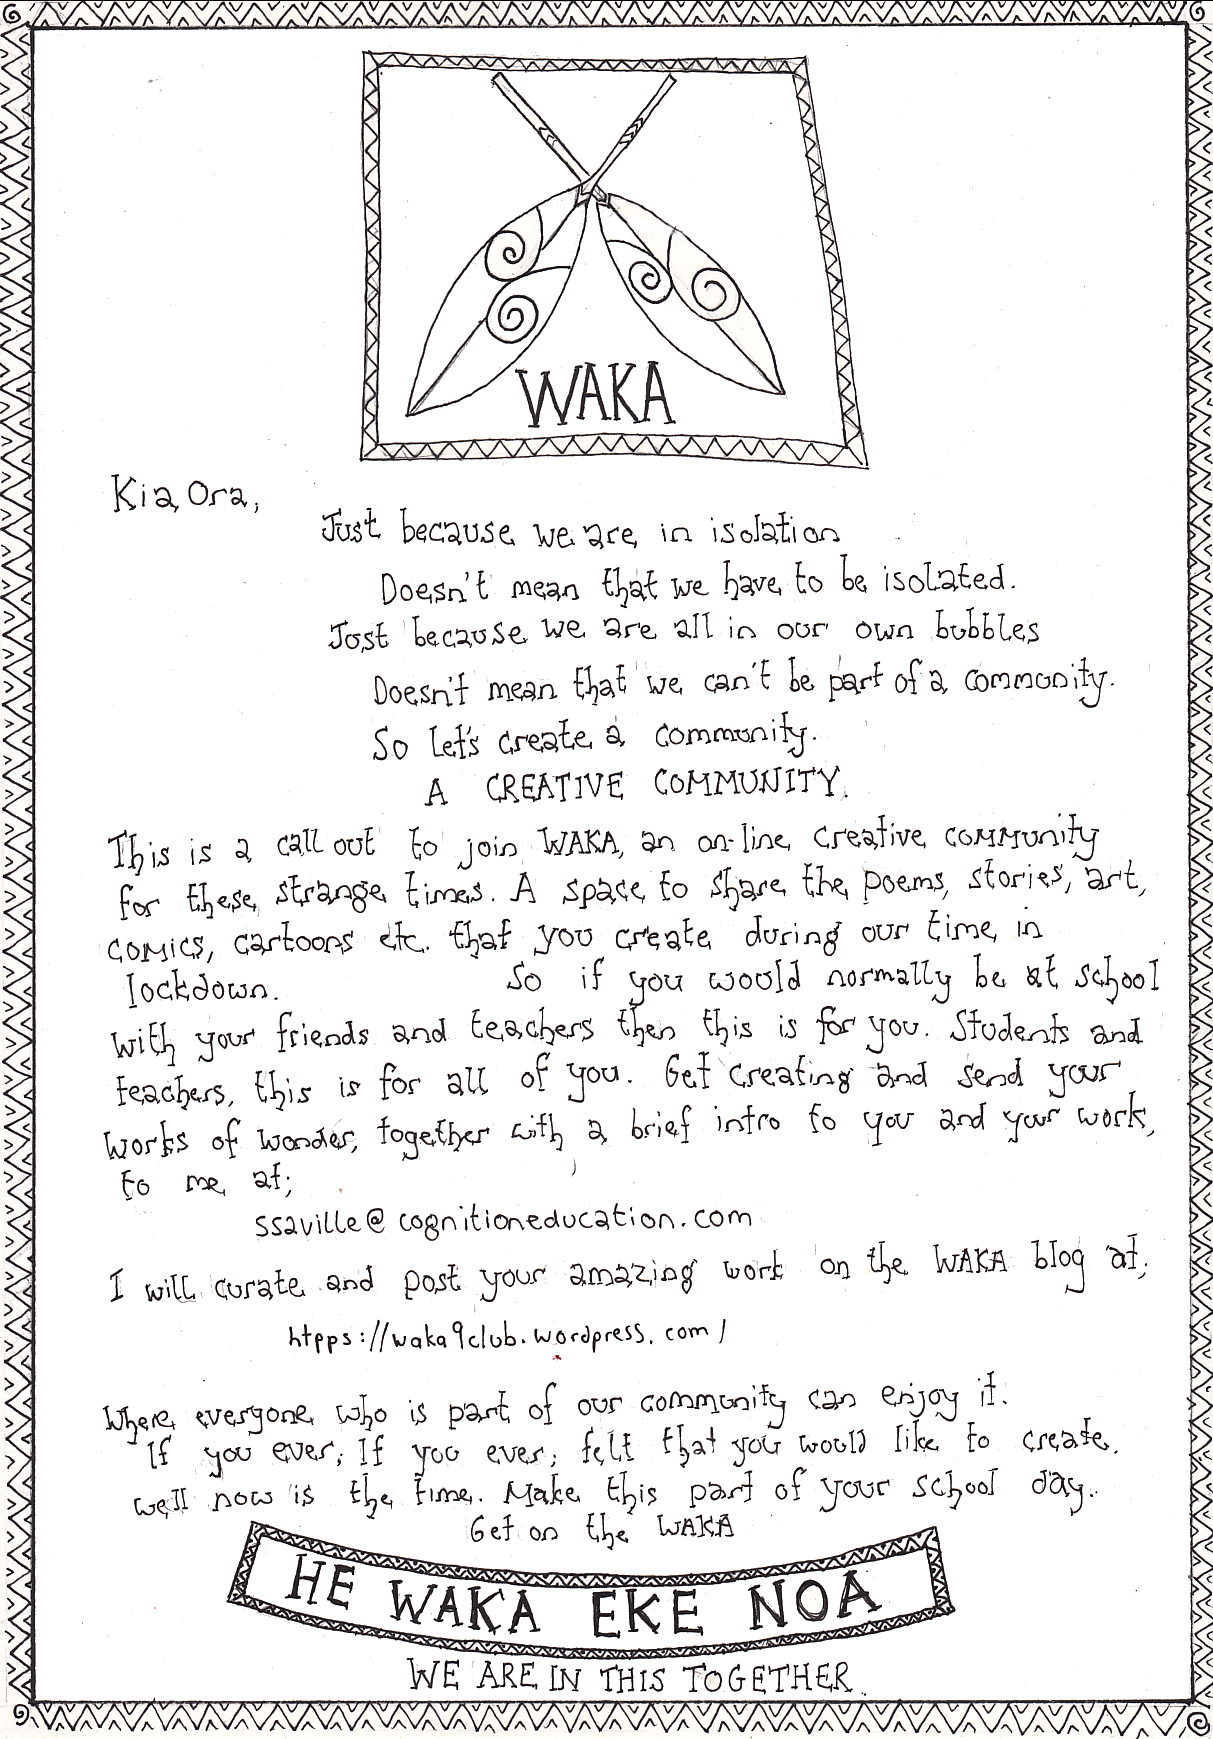 WAKA
Kia Ora,
Just because we are in isolation
Doesn't mean that we have to be isolated.
Just because we are all in our own bubbles
Doesn't mean that we can't be part of a community.
So let's create a community.
A CREATIVE COMMUNITY.
This is a call out to join WAKA, an on-line creative community
for these strange times. A space to share the poems, stories, art,
comics, cartoons etc. that you create during our time in
lockdown. So if you would normally be at school
with your friends and teachers then this is for you. Students and
teachers, this is for all of you. Get creating and send your
works of wonder, together with a brief intro to you and your work,
to me at;
ssaville@cognitioneducation.com
I will curate and post your amazing work on the WAKA blog at;
htpps://waka9club.wordpress.com/
Where everyone who is part of our community can enjoy it.
If you ever; If you ever; felt that you would like to create,
well now is the time. Make this part of your school day.
Get on the WAKA
HE WAKA EKE NOA
WE ARE IN THIS TOGETHER.